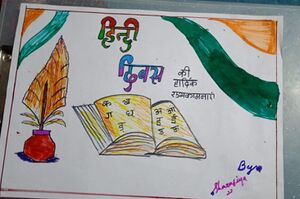 हिन्दी
दिवस
की
हार्दिक
शुभकामनाएं
क ख
ग घ
अ आ
इ ई
By